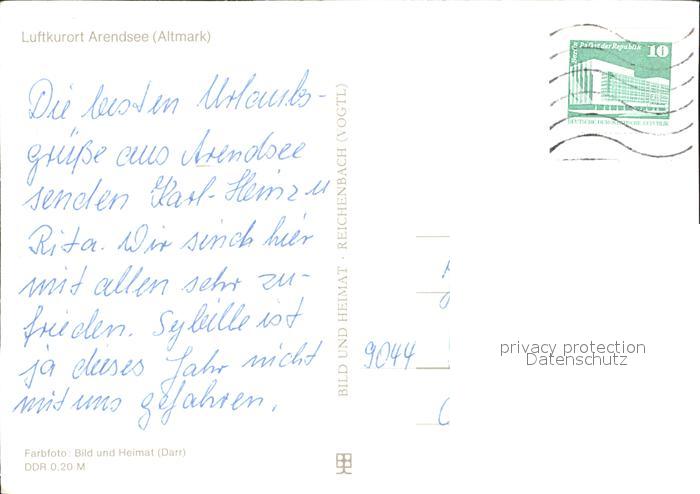 Luftkurort Arendsee (Altmark)
Die besten Urlaubs-
grüße aus Arendsee
senden Karl-Heinz u
Rita. Wir sind hier
mit allen sehr zu-
frieden. Sybille ist
ja dieses Jahr nicht
mit uns gefahren.
Farbfoto: Bild und Heimat (Darr)
DDR 0,20 M
BILD UND HEIMAT · REICHENBACH (VOGTL)
Berlin Palast der Republik 10
DEUTSCHE DEMOKRATISCHE REPUBLIK
9044
privacy protection
Datenschutz